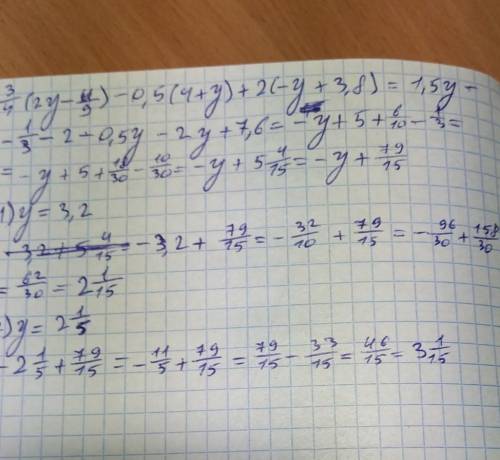 3/4(2y-4/9)-0,5(4+y)+2(-y+3,8)=1,5y-
-1/3-2-0,5y-2y+7,6=-y+5+6/10-1/3=
=-y+5+18/30-10/30=-y+5 4/15=-y+79/15
1)y=3,2
-3,2+5 4/15 -3,2+79/15=-32/10+79/15=-96/30+158/30
=62/30=2 1/15
2)y=2 1/5
-2 1/5+79/15=-11/5+79/15=79/15-33/15=46/15=3 1/15